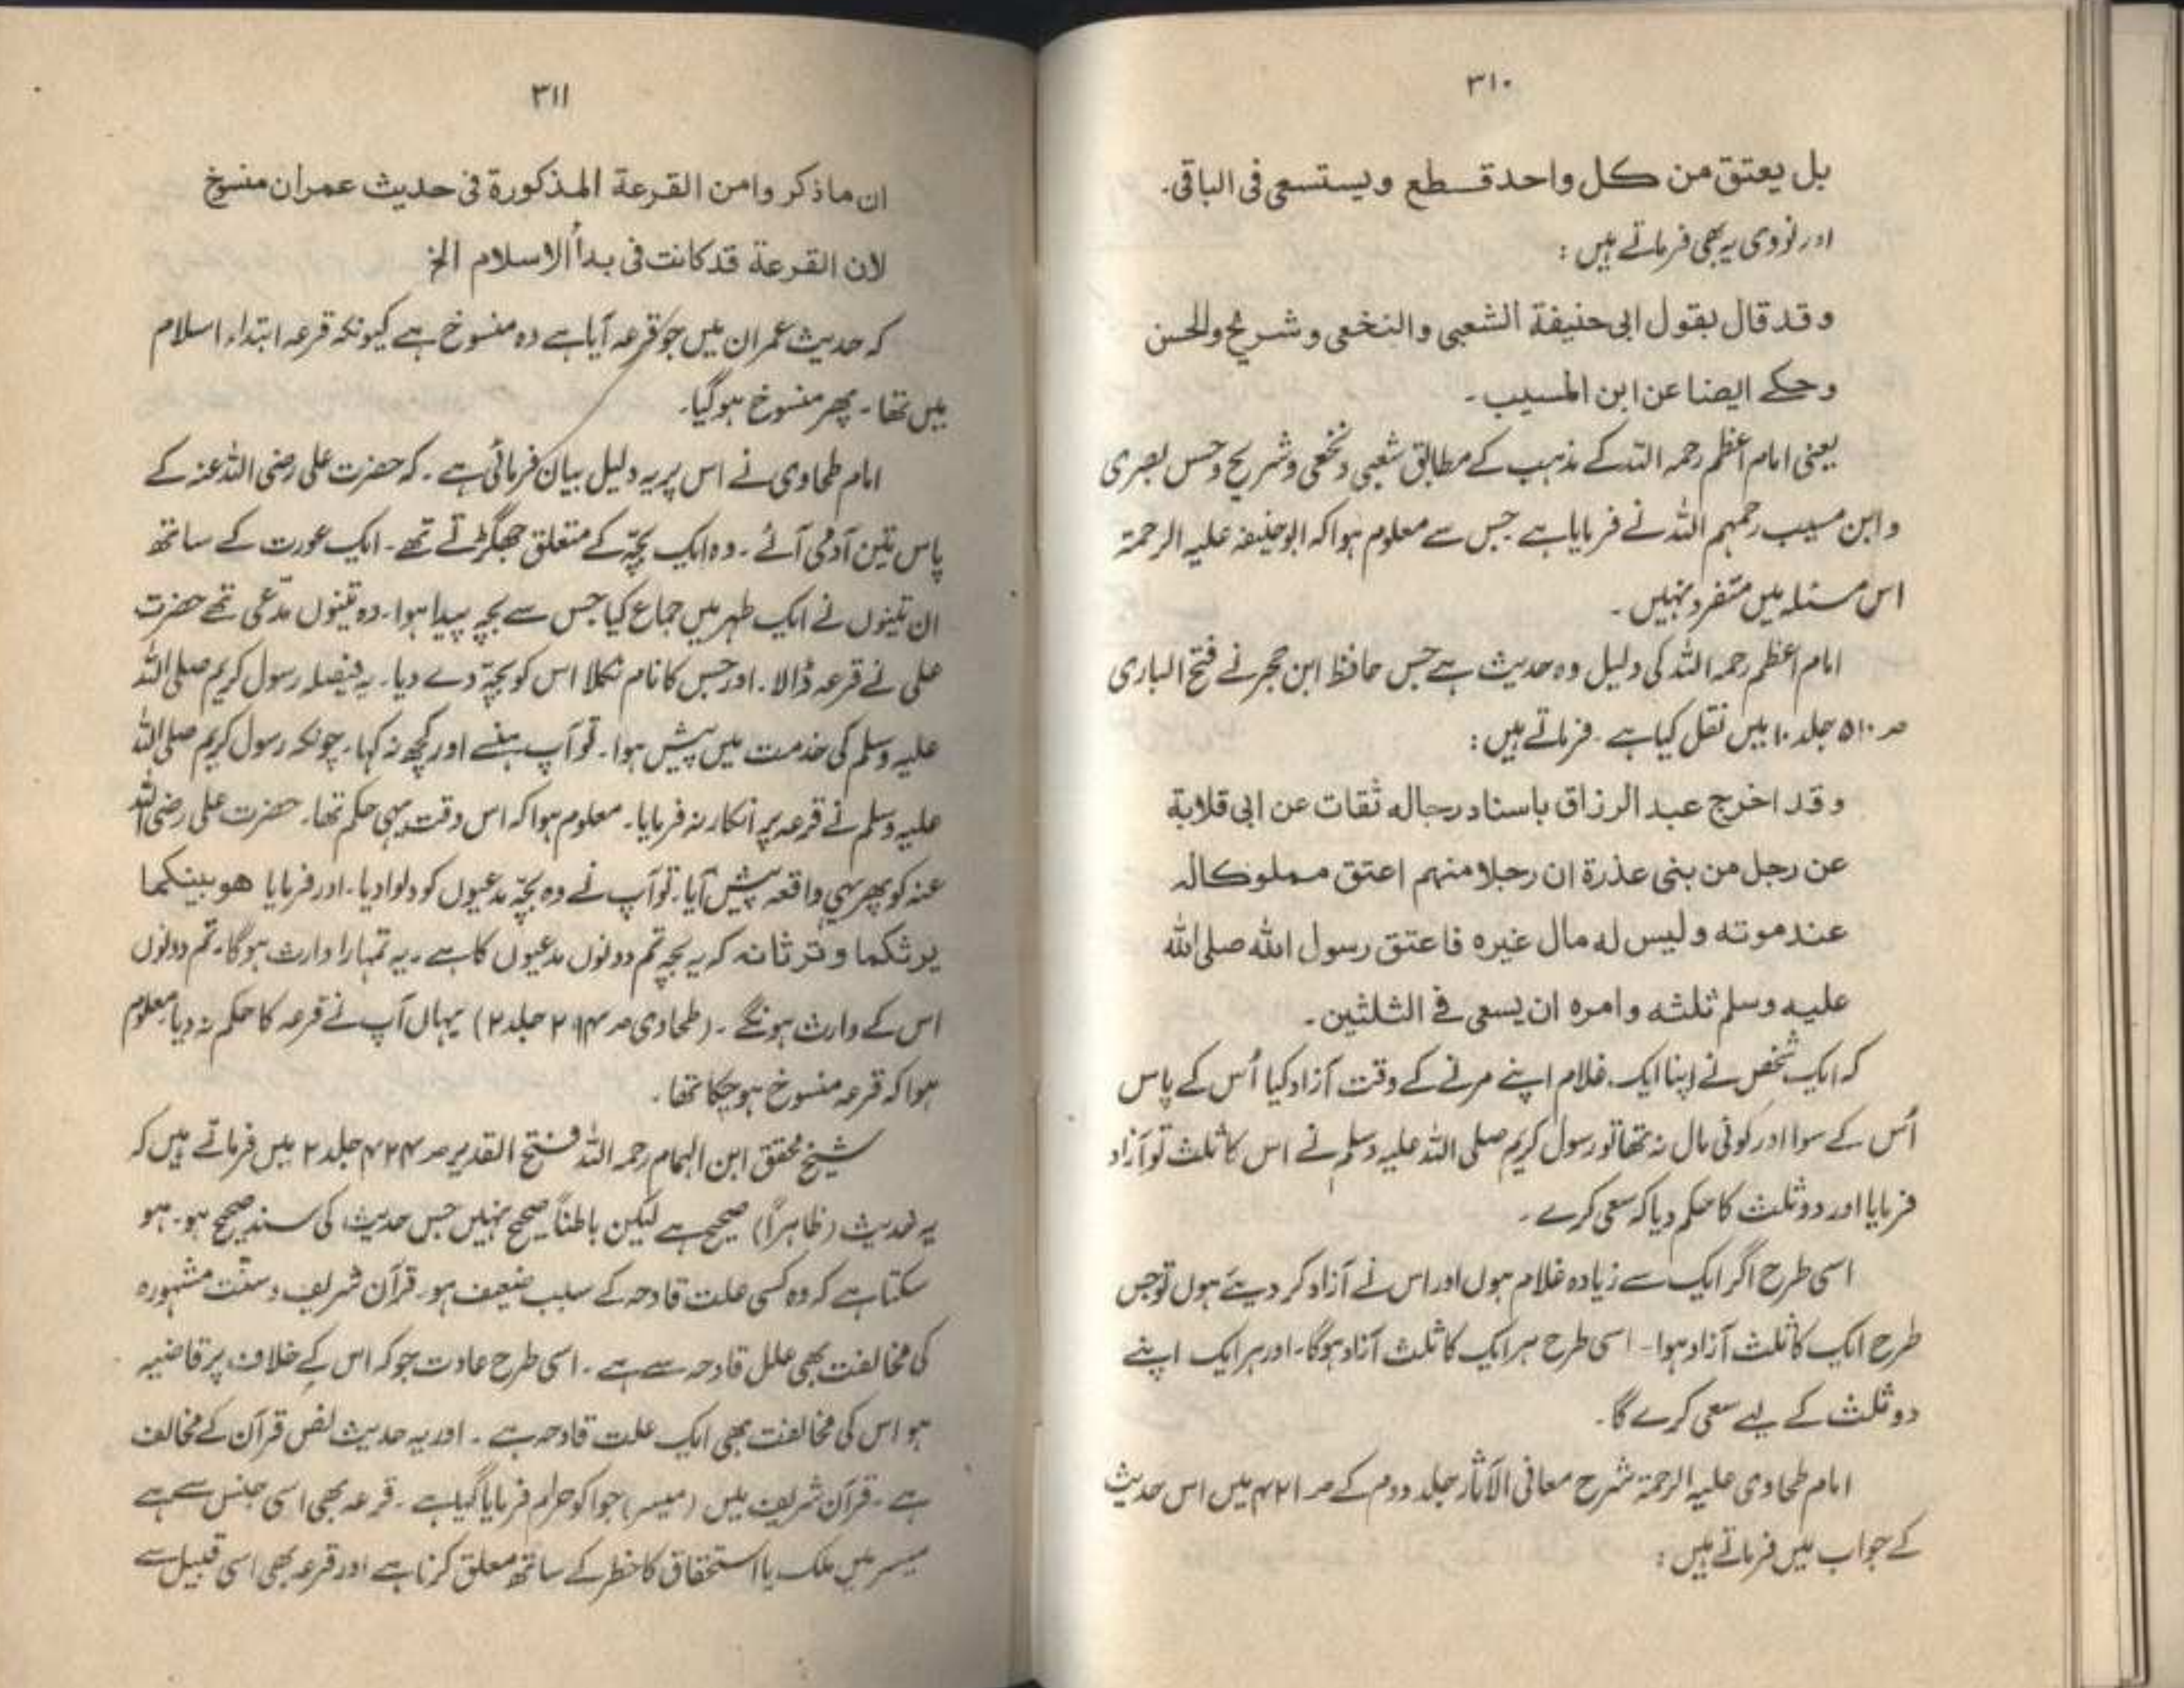 ۳۱۰
بل یعتق من کل واحد قسطع ویستسعی فی الباقی۔
اور نووی یہ بھی فرماتے ہیں :
وقد قال بقول ابی حنیفة الشعبی والنخعی وشریح والحسن
وحکے ایضا عن ابن المسیب۔
یعنی امام اعظم رحمہ اللہ کے مذہب کے مطابق شعبی ونخعی وشریح وحسن بصری
وابن مسیب رحمہم اللہ نے فرمایا ہے جس سے معلوم ہوا کہ ابوحنیفہ علیہ الرحمۃ
اس مسئلہ میں متفرد نہیں۔
امام اعظم رحمہ اللہ کی دلیل وہ حدیث ہے جس حافظ ابن حجر نے فتح الباری
صـ ۵۱۰ جلد ۱۰ میں نقل کیا ہے۔ فرماتے ہیں :
وقد اخرج عبد الرزاق باسناد رجاله ثقات عن ابی قلابة
عن رجل من بنی عذرة ان رجلا منهم اعتق مملوکا له
عند موته ولیس له مال غیره فاعتق رسول الله صلی الله
علیه وسلم ثلثه وامره ان یسعی فی الثلثین۔
کہ ایک شخص نے اپنا ایک غلام اپنے مرنے کے وقت آزاد کیا اُس کے پاس
اُس کے سوا اور کوئی مال نہ تھا تو رسول کریم صلی اللہ علیہ وسلم نے اس کا ثلث تو آزاد
فرمایا اور دو ثلث کا حکم دیا کہ سعی کرے۔
اسی طرح اگر ایک سے زیادہ غلام ہوں اور اس نے آزاد کر دیئے ہوں تو جس
طرح ایک کا ثلث آزاد ہوا۔ اسی طرح ہر ایک کا ثلث آزاد ہوگا۔ اور ہر ایک اپنے
دو ثلث کے لیے سعی کرے گا۔
امام طحاوی علیہ الرحمۃ شرح معانی الآثار جلد دوم کے صـ ۴۲۱ میں اس حدیث
کے جواب میں فرماتے ہیں :
۳۱۱
ان ماذکر وامن القرعة المذکورة فی حدیث عمران منسوخ
لان القرعة قد کانت فی بدأ الاسلام الخ
کہ حدیث عمران میں جو قرعہ آیا ہے وہ منسوخ ہے کیونکہ قرعہ ابتداء اسلام
میں تھا۔ پھر منسوخ ہوگیا۔
امام طحاوی نے اس پر یہ دلیل بیان فرمائی ہے۔ کہ حضرت علی رضی اللہ عنہ کے
پاس تین آدمی آئے۔ وہ ایک بچّہ کے متعلق جھگڑتے تھے۔ ایک عورت کے ساتھ
ان تینوں نے ایک طہر میں جماع کیا جس سے بچہ پیدا ہوا۔ وہ تینوں مدّعی تھے حضرت
علی نے قرعہ ڈالا۔ اور جس کا نام نکلا اس کو بچّہ دے دیا۔ یہ فیصلہ رسول کریم صلی اللہ
علیہ وسلم کی خدمت میں پیش ہوا۔ تو آپ ہنسے اور کچھ نہ کہا۔ چونکہ رسول کریم صلی اللہ
علیہ وسلم نے قرعہ پر انکار نہ فرمایا۔ معلوم ہوا کہ اس وقت یہی حکم تھا۔ حضرت علی رضی اللہ
عنہ کو پھر یہی واقعہ پیش آیا۔ تو آپ نے وہ بچّہ مدعیوں کو دلوا دیا۔ اور فرمایا هو بینکما
یرثکما وترثانه کہ یہ بچہ تم دونوں مدعیوں کا ہے۔ یہ تمہارا وارث ہوگا۔ تم دونوں
اس کے وارث ہونگے۔ (طحاوی صـ ۲۹۴ جلد ۲) یہاں آپ نے قرعہ کا حکم نہ دیا معلوم
ہوا کہ قرعہ منسوخ ہو چکا تھا۔
شیخ محقق ابن الہمام رحمہ اللہ فتح القدیر صـ ۴۲۴ جلد ۲ میں فرماتے ہیں کہ
یہ حدیث (ظاہراً) صحیح ہے لیکن باطناً صحیح نہیں جس حدیث کی سند صحیح ہو۔ ہو
سکتا ہے کہ وہ کسی علت قادحہ کے سبب ضعیف ہو۔ قرآن شریف و سنّت مشہورہ
کی مخالفت بھی علل قادحہ سے ہے۔ اسی طرح عادت جو کہ اس کے خلاف پر قاضیہ
ہو اس کی مخالفت بھی ایک علت قادحہ ہے۔ اور یہ حدیث نص قرآن کے مخالف
ہے۔ قرآن شریف میں (میسر) جوا کو حرام فرمایا گیا ہے۔ قرعہ بھی اسی جنس سے ہے
میسر میں ملک یا استحقاق کا خطر کے ساتھ معلق کرنا ہے اور قرعہ بھی اسی قبیل سے